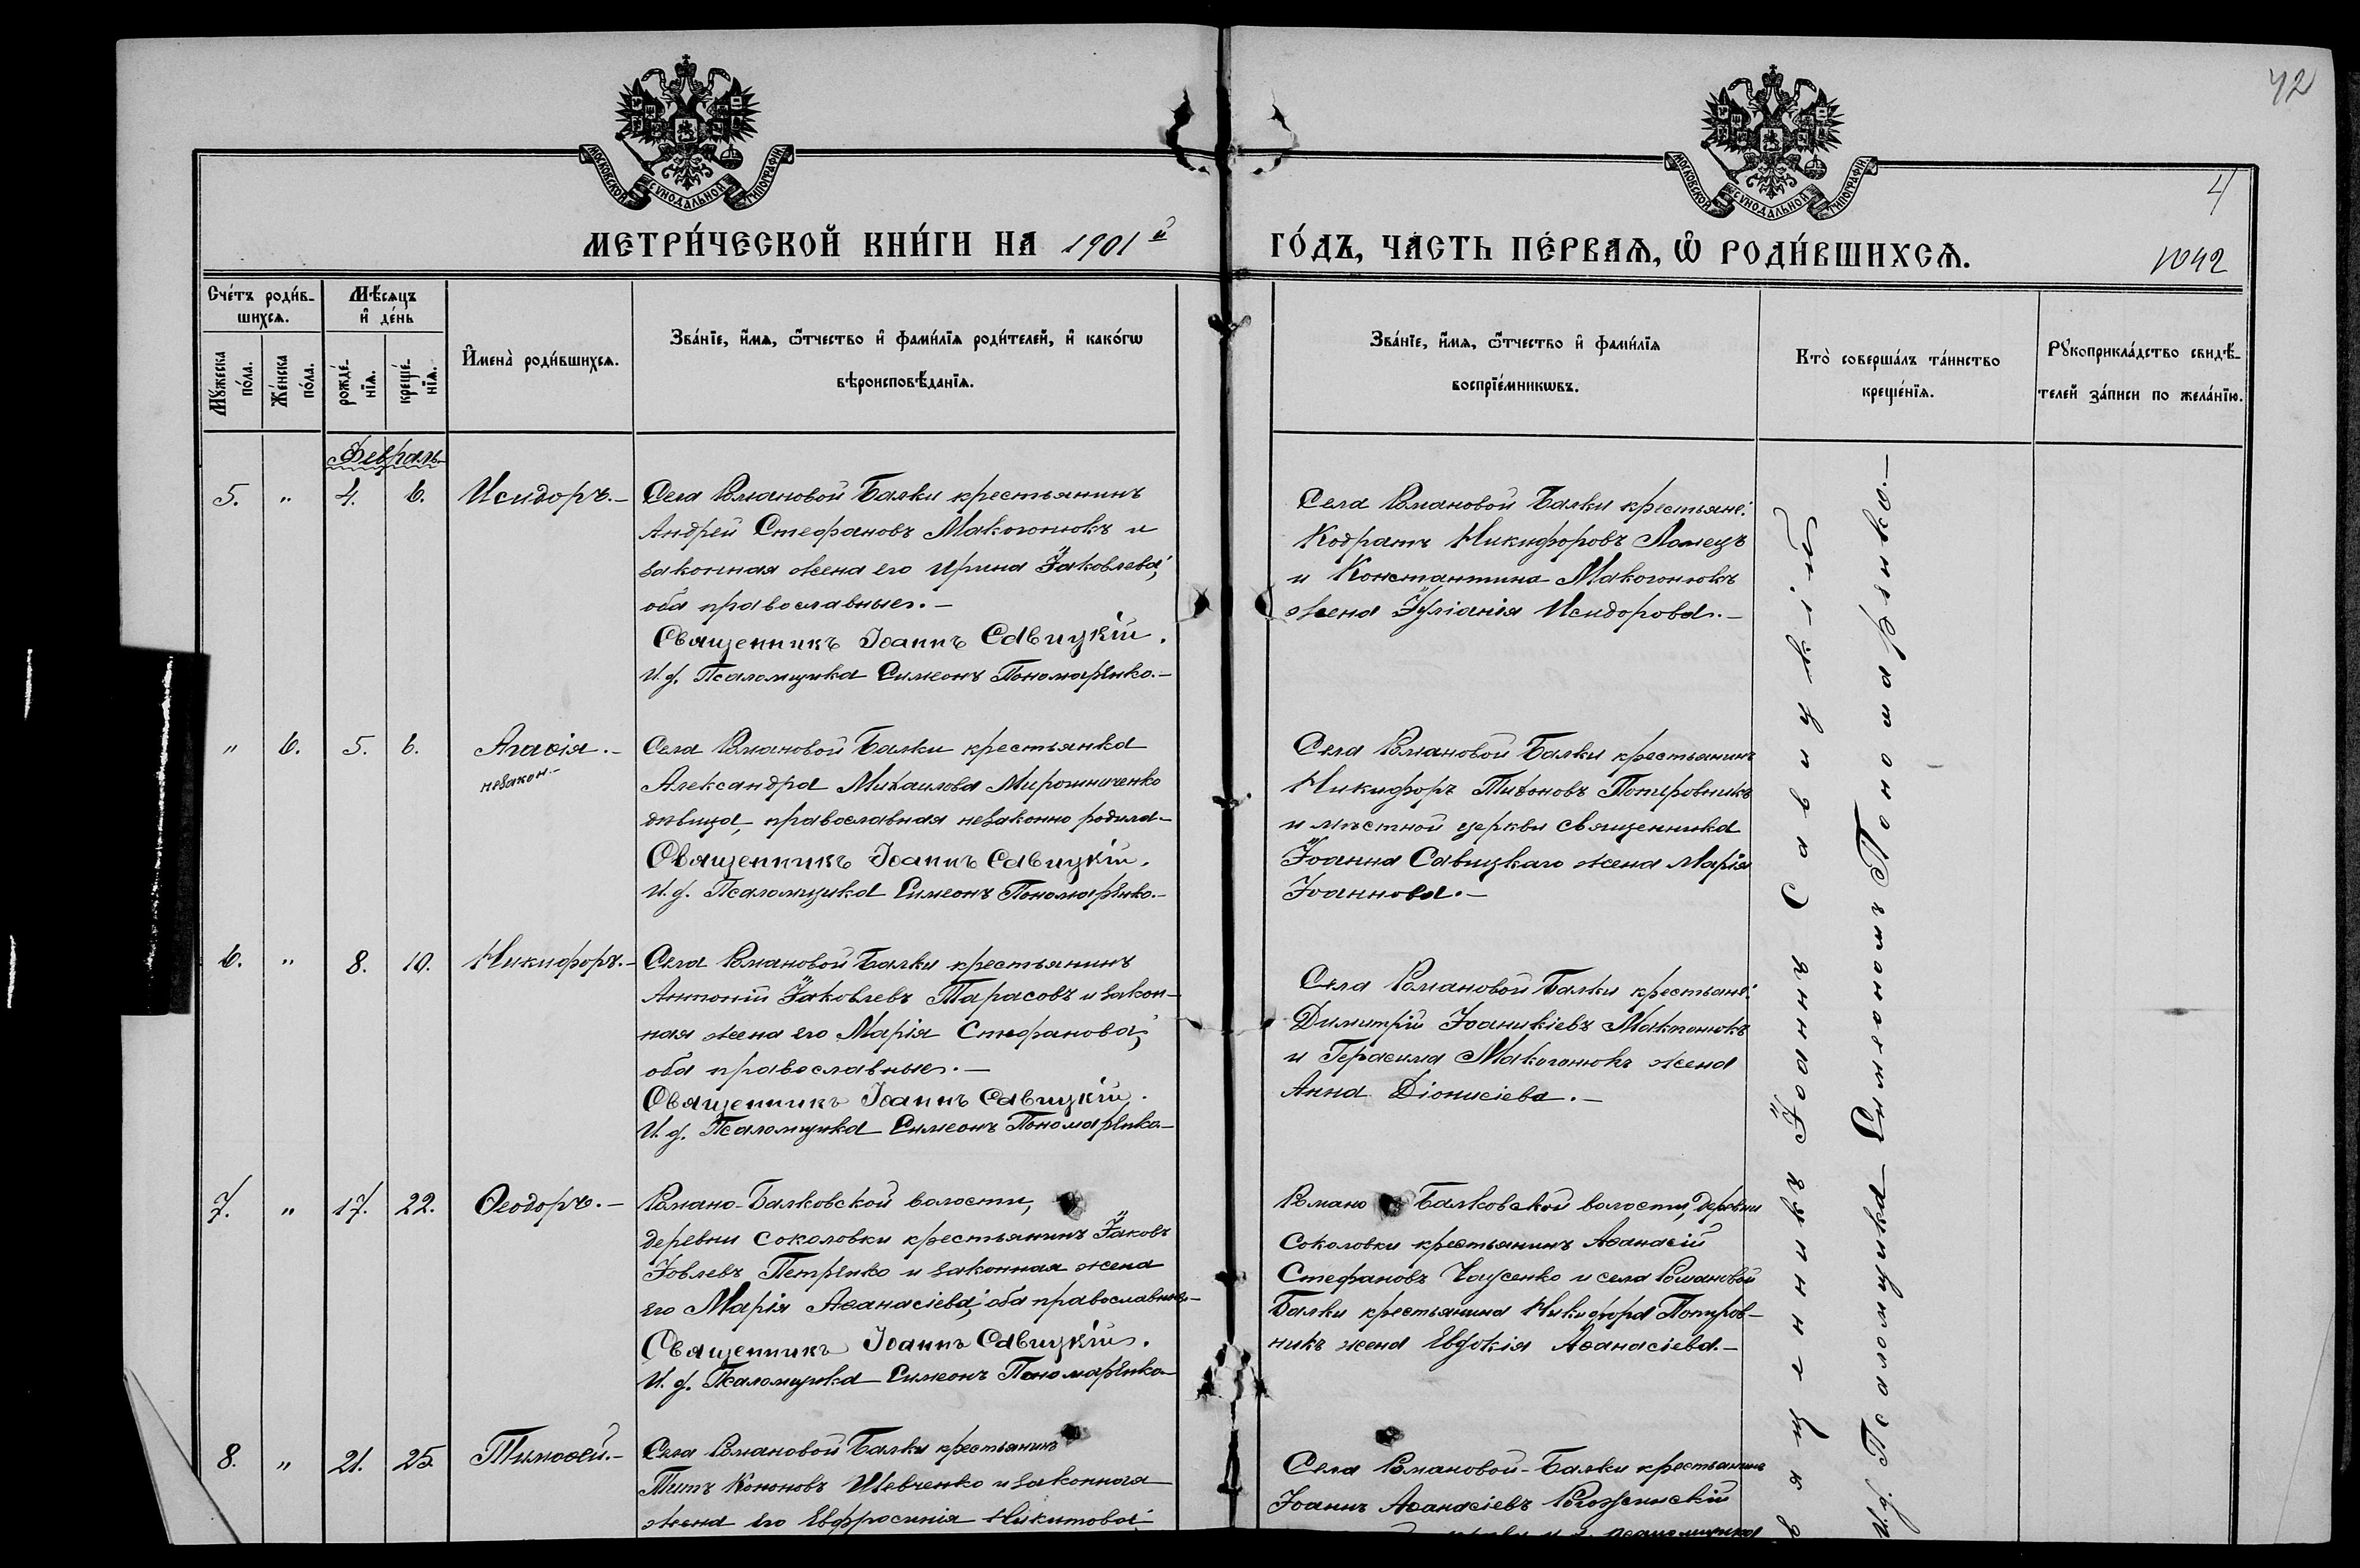 42
МОСКОВСКОЙ СѴНОДАЛЬНОЙ ТИПОГРАФІИ
МОСКОВСКОЙ СѴНОДАЛЬНОЙ ТИПОГРАФІИ
4
МЕТРИ́ЧЕСКОЙ КНИ́ГИ НА 1901й
ГО́ДЪ, ЧА́СТЬ ПЕ́РВАѦ, Ѽ РОДИ́ВШИХСѦ.
1042
Сче́тъ роди́в-
шихсѧ.
Мѣ́сѧцъ
и҆ де́нь
Мꙋ́жеска
по́ла.
Же́нска
по́ла.
рожде́-
нїѧ.
креще́-
нїѧ.
И҆мена̀ роди́вшихсѧ.
Зва́нїе, и҆́мѧ, ѻ҆́тчество и҆ фами́лїѧ роди́телей, и҆ како́гѡ
вѣроисповѣ́данїѧ.
Зва́нїе, и҆́мѧ, ѻ҆́тчество и҆ фами́лїѧ
воспрїе́мникѡвъ.
Кто̀ соверша́лъ та́инство
креще́нїѧ.
Рꙋкоприкла́дство свидѣ́-
телей за́писи по жела́нїю.
Февраль
5. " 4. 6. Исидоръ.-
Села Романовой Балки крестьянинъ
Андрей Стефановъ Макогонюкъ и
законная жена его Ирина Іаковлева;
оба православные.-
Священникъ Іоаннъ Савицкій.
И. д. Псаломщика Симеонъ Пономаренко.-
Села Романовой Балки крестьяне:
Кодратъ Никифоровъ Ломецъ
и Константина Макогонюкъ
жена Іуліанія Исидорова.-
" 6. 5. 6. Агаѳія.-
незакон.-
Села Романовой Балки крестьянка
Александра Михаилова Мирошниченко
дѣвица, православная незаконно родила-
Священникъ Іоаннъ Савицкій.
И. д. Псаломщика Симеонъ Пономаренко.-
Села Романовой Балки крестьянинъ
Никифоръ Тихоновъ Потировникъ
и мѣстной церкви священника
Іоанна Савицкаго жена Марія
Іоаннова.-
6. " 8. 10. Никифоръ.-
Села Романовой Балки крестьянинъ
Антоній Іаковлевъ Тарасовъ и закон-
ная жена его Марія Стефанова;
оба православные.-
Священникъ Іоаннъ Савицкій.
И. д. Псаломщика Симеонъ Пономаренко-
Села Романовой Балки крестьяне:
Димитрій Іоаникіевъ Макогонюкъ
и Герасима Макогонюкъ жена
Анна Діонисіева.-
7. " 17. 22. Ѳеодоръ.-
Романо-Балковской волости,
деревни Соколовки крестьянинъ Іаковъ
Іовлевъ Петренко и законная жена
его Марія Аѳанасіева; оба православные-
Священникъ Іоаннъ Савицкій.
И. д. Псаломщика Симеонъ Пономаренко
Романо Балковской волости, деревни
Соколовки крестьянинъ Аѳанасій
Стефановъ Чаусенко и села Романовой
Балки крестьянина Никифора Потиров-
никъ жена Евдокія Аѳанасіева.-
8. " 21. 25. Тимоѳей.-
Села Романовой Балки крестьянинъ
Титъ Кононовъ Шевченко и законная
жена его Евфросинія Никитова;
Села Романовой-Балки крестьянинъ
Іоаннъ Аѳанасіевъ Рогожинскій
псаломщика
Священникъ Іоаннъ Савицкій.
И. д. Псаломщика Симеономъ Пономаренко.-